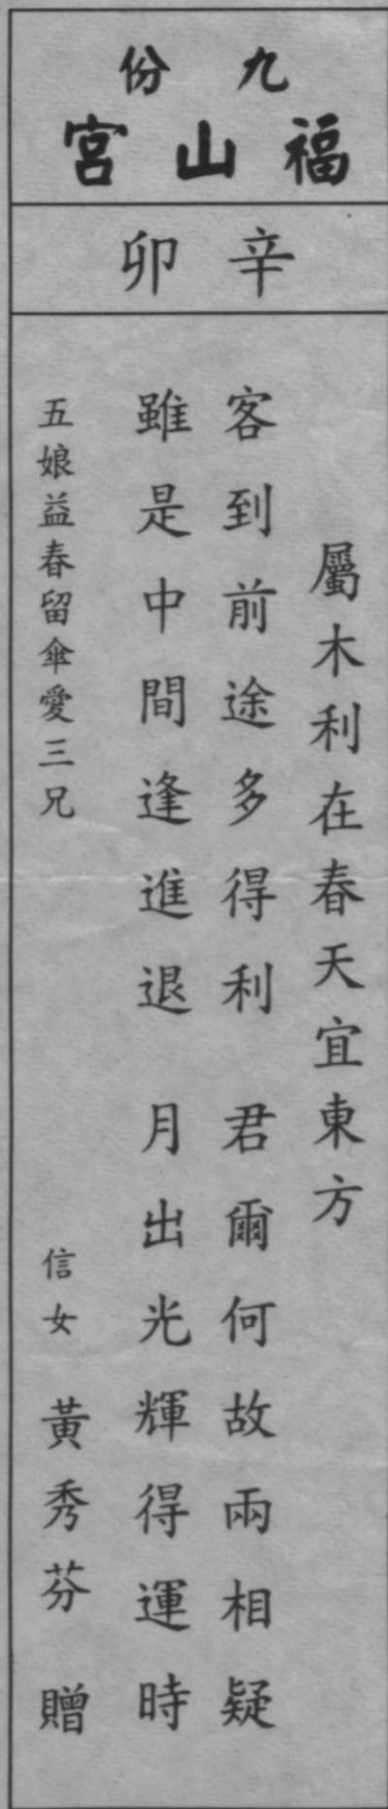 九份
福山宮
辛卯
屬木利在春天宜東方
客到前途多得利 君爾何故兩相疑
雖是中間逢進退 月出光輝得運時
五娘益春留傘愛三兄 信女 黃秀芬 贈